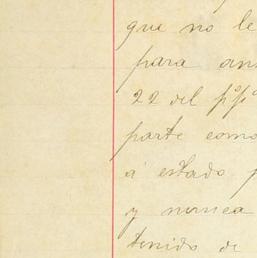 que no le
para an
22 del p°p°
parte como
á estado p
y nunca
tenido de